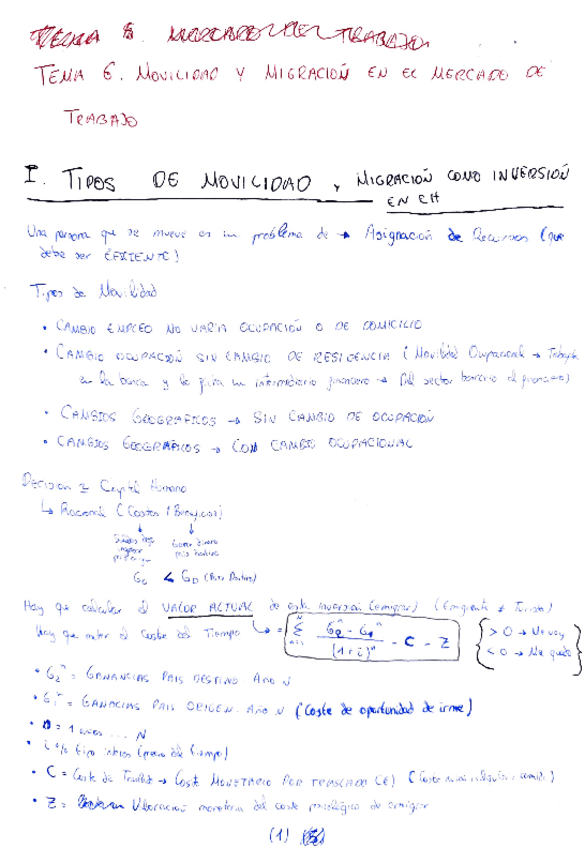 TEMA 6. MOVILIDAD Y MIGRACIÓN EN EL MERCADO DE
TRABAJO
I. TIPOS DE MOVILIDAD y MIGRACIÓN COMO INVERSIÓN
EN CH
Una persona que se mueve es un problema de → Asignación de Recursos (que
debe ser EFICIENTE)
Tipos de Movilidad
• CAMBIO EMPLEO NO VARIA OCUPACIÓN O DE DOMICILIO
• CAMBIO OCUPACIÓN SIN CAMBIO DE RESIDENCIA (Movilidad Ocupacional → Trabaja
en la banca y lo ficha un intermediario financiero → Del sector bancario al financiero)
• CAMBIOS GEOGRAFICOS → SIN CAMBIO DE OCUPACIÓN
• CAMBIOS GEOGRÁFICOS → CON CAMBIO OCUPACIONAL
Decision Capital Humano
↳ Racional (Costes / Beneficios)
Ganar dinero
país destino
G₀ < G_D (País Destino)
Hay que calcular el VALOR ACTUAL de esta inversión (emigrar) (Emigrante ≠ Turista)
Hay que meter el Coste del Tiempo ↳ = Σ (G₂ⁿ - G₁ⁿ) / (1+i)ⁿ - C - Z { > 0 → Me voy
< 0 → Me quedo }
• G₂ⁿ = GANANCIAS PAIS DESTINO AÑO N
• G₁ⁿ = GANACIAS PAIS ORIGEN. AÑO N (Coste de oportunidad de irme)
• n = 1 años ... N
• i % tipo interes (precio del tiempo)
• C = Coste de Traslado → COSTE MONETARIO POR TRASLADO (€)
• Z = Valoración monetaria del coste psicológico de emigrar
(1)